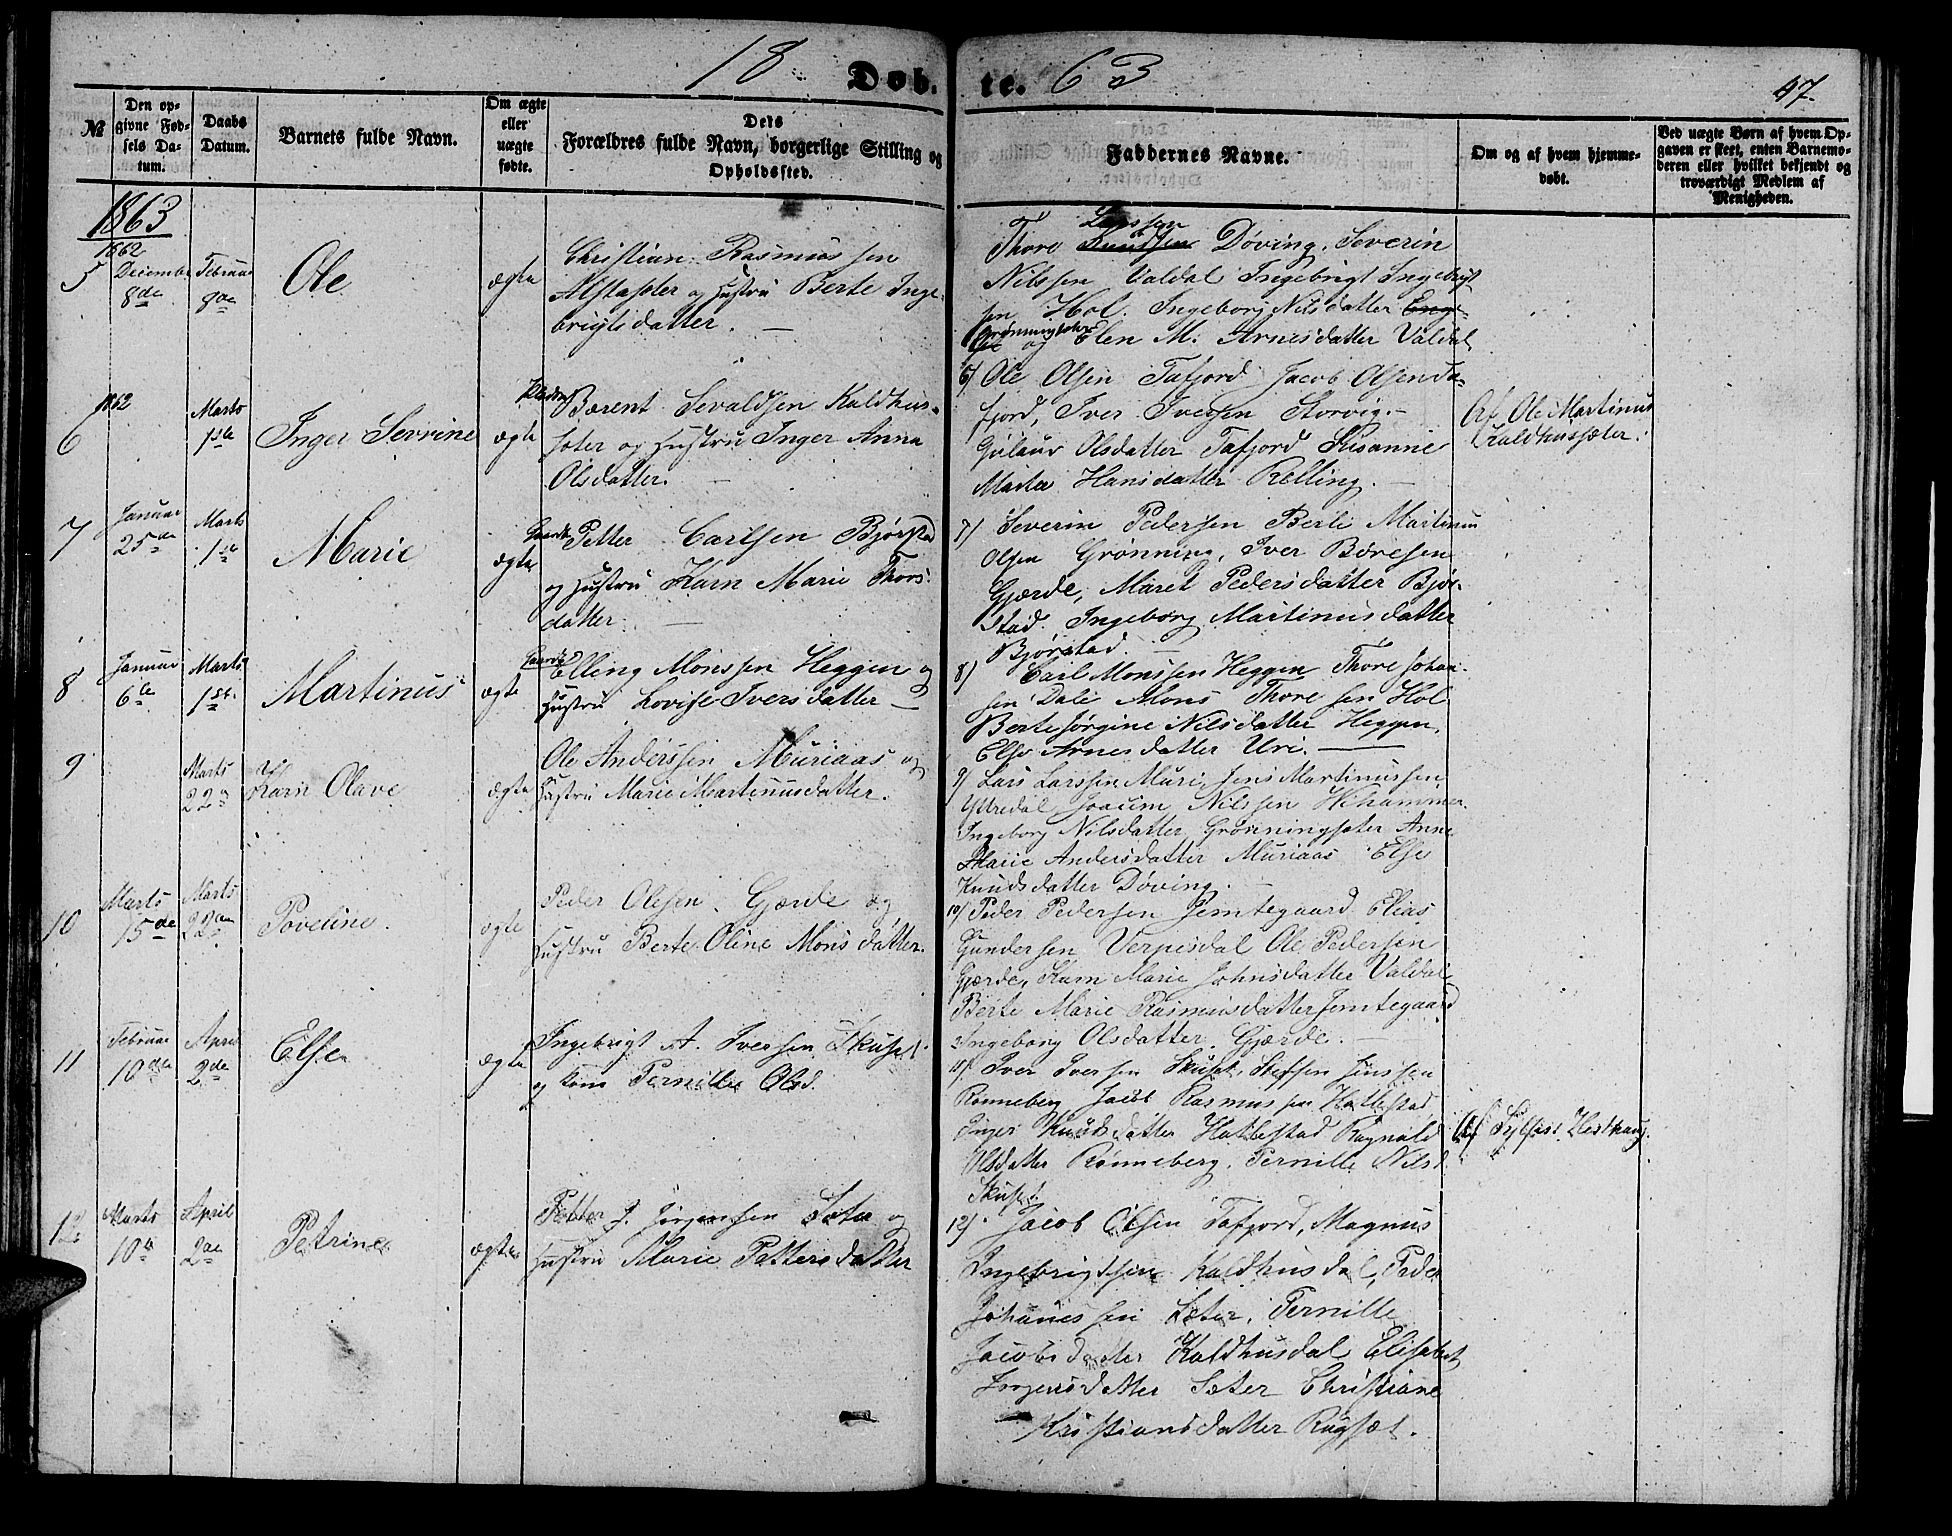 18 Døb- te. 63
47.
№
Den op-
givne Fød-
sels Da-
tum.
Daabs
Datum.
Barnets fulde Navn.
Om ægte
eller
uægte
fødte.
Dets
Forældres fulde Navn, borgerlige Stilling og
Opholdssted.
Faddernes Navne.
Om og af hvem hjemme-
døbt.
Ved uægte Børn af hvem Op-
gaven er skeet, enten Barnemo-
deren eller hvilket bekjendt og
troværdigt Medlem af
Menigheden.
1863
1862
5
Decembr
8de
Februar
8de
Ole
ægte
Christian Rasmussen
Alstadsæter og Hustru Berte Inge-
brigtsdatter.
Larssen
Thore Knudsen Døving, Severin
Nilssen Valdal Ingebrigt Ingebrigt
sen Hol. Ingeborg Nilsdatter
Grønningsæter og Elen M. Arnesdatter Valdal
1862
6
Marts
1ste
Inger Sevrine
ægte
Bærent Sevaldsen Kaldhus-
sæter og Hustru Inger Anna
Olsdatter.
6) Ole Olsen Tafjord Jacob Olsen Ta-
fjord, Iver Iversen Storvig.
Gulaug Olsdatter Tafjord Susanne
Marta Hansdatter Relling.
Af Ole Martinus
Kaldhussæter.
7
Januar
25de
Marts
1ste
Marie
ægte
Gaardb. Petter Carlsen Bjørstad
og Hustru Karn Marie Thors-
datter.
7) Severin Pedersen Berli Martinus
Olsen Grønning, Iver Boresen
Gjærde, Maret Pedersdatter Bjør-
stad. Ingeborg Martinusdatter
Bjørstad.
8
Januar
6te
Marts
1ste
Martinus
ægte
Gaardb. Elling Monssen Heggen og
Hustru Lovise Iversdatter
8) Carl Monssen Heggen Thore Johan-
sen Dale Mons Thoresen Hol
Berte Jørgine Nilsdatter Heggen.
Else Arnesdatter Uri.
9
Marts
22
Karn Olave
ægte
Ole Anderssen Muriaas og
Hustru Marie Martinusdatter.
9) Lars Larssen Muri, Jens Martinussen
Yttredal Joacim Nilssen
Ingeborg Nilsdatter Grønningsæter Anne
Marie Andersdatter Muriaas Else
Knudsdatter Døving.
10
Marts
15de
Marts
22den
Poveline.
ægte
Peder Olesen Gjærde og
Hustru Berte Oline Monsdatter.
10) Peder Pedersen Jemtegaard Elias
Gundersen Verpesdal Ole Pedersen
Gjærde, Karn Marie Johnsdatter Valdal
Berte Marie Rasmusdatter Jemtegaard
Ingeborg Olsdatter Gjærde.
11
Februar
10de
April
2de
Else
ægte
Ingebrigt A. Iversen Skuset
og Kone Pernille Olsd.
11) Iver Iversen Skuset, Steffen Jenssen
Rønneberg Jacob Rasmussen Hatlestad
Inger Knudsdatter Hatlestad Ragnild
Olsdatter Rønneberg. Pernille Nilsd.
Skuset.
12
Marts
10de
April
2de
Petrine
ægte
Petter J. Jørgenssen Sæter og
Hustru Marie Pettersdatter
12) Jacob Olsen Tafjord, Magnus
Ingebrigtsen Kaldhusdal, Peder
Johannessen Sæter, Pernille
Jacobsdatter Kaldhusdal Elisabet
Jørgensdatter Sæter Christiane
Kristiansdatter Rugsæt.